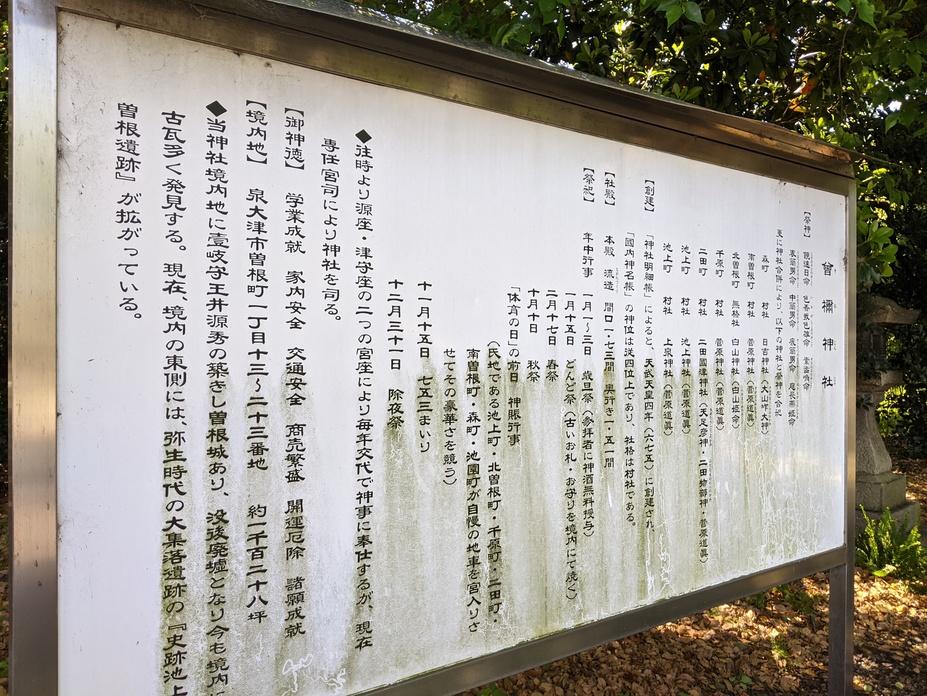 曾禰神社
【祭神】 饒速日命
表筒男命 中筒男命 底筒男命 息長帯姫命
更に神社合併により、以下の神社と祭神を合祀
森町 村社 日吉神社(大山咋大神)
南曽根町 村社 菅原神社(菅原道真)
北曽根町 無格社 白山神社(白山姫命)
千原町 村社 菅原神社(菅原道真)
二田町 村社 二田國津神社(天足彦神・二田物部神・菅原道真)
池上町 村社 池上神社(菅原道真)
池上町 村社 上泉神社(菅原道真)
【創建】 「神社明細帳」によると、天武天皇四年(六七五)に創建され、
「国内神名帳」の神位は従四位上であり、社格は村社である。
【社殿】 本殿 流造 間口一・七三間 奥行き一・五一間
【祭祀】 年中行事 一月一~三日 歳旦祭(参拝者に神酒無料授与)
一月十五日 どんど祭(古いお札・お守りを境内にて焼く)
二月十七日 春祭
十月十日 秋祭
「体育の日」の前日 神賑行事
(氏地である池上町・北曽根町・千原町・二田町・
南曽根町・森町・池園町が自慢の地車を宮入りさ
せてその豪華さを競う)
十一月十五日 七五三まいり
十二月三十一日 除夜祭
◆往時より源座・津守座の二つの宮座により毎年交代で神事に奉仕するが、現在
専任宮司により神社を司る。
【御神徳】 学業成就 家内安全 交通安全 商売繁盛 開運厄除 諸願成就
【境内地】 泉大津市曽根町一丁目十三~二十三番地 約一千百二十八坪
◆当神社境内地に壹岐守王井源秀の築きし曽根城あり、没後廃墟となり今も境内に
古瓦多く発見する。現在、境内の東側には、弥生時代の大集落遺跡の『史跡池上
曽根遺跡』が拡がっている。